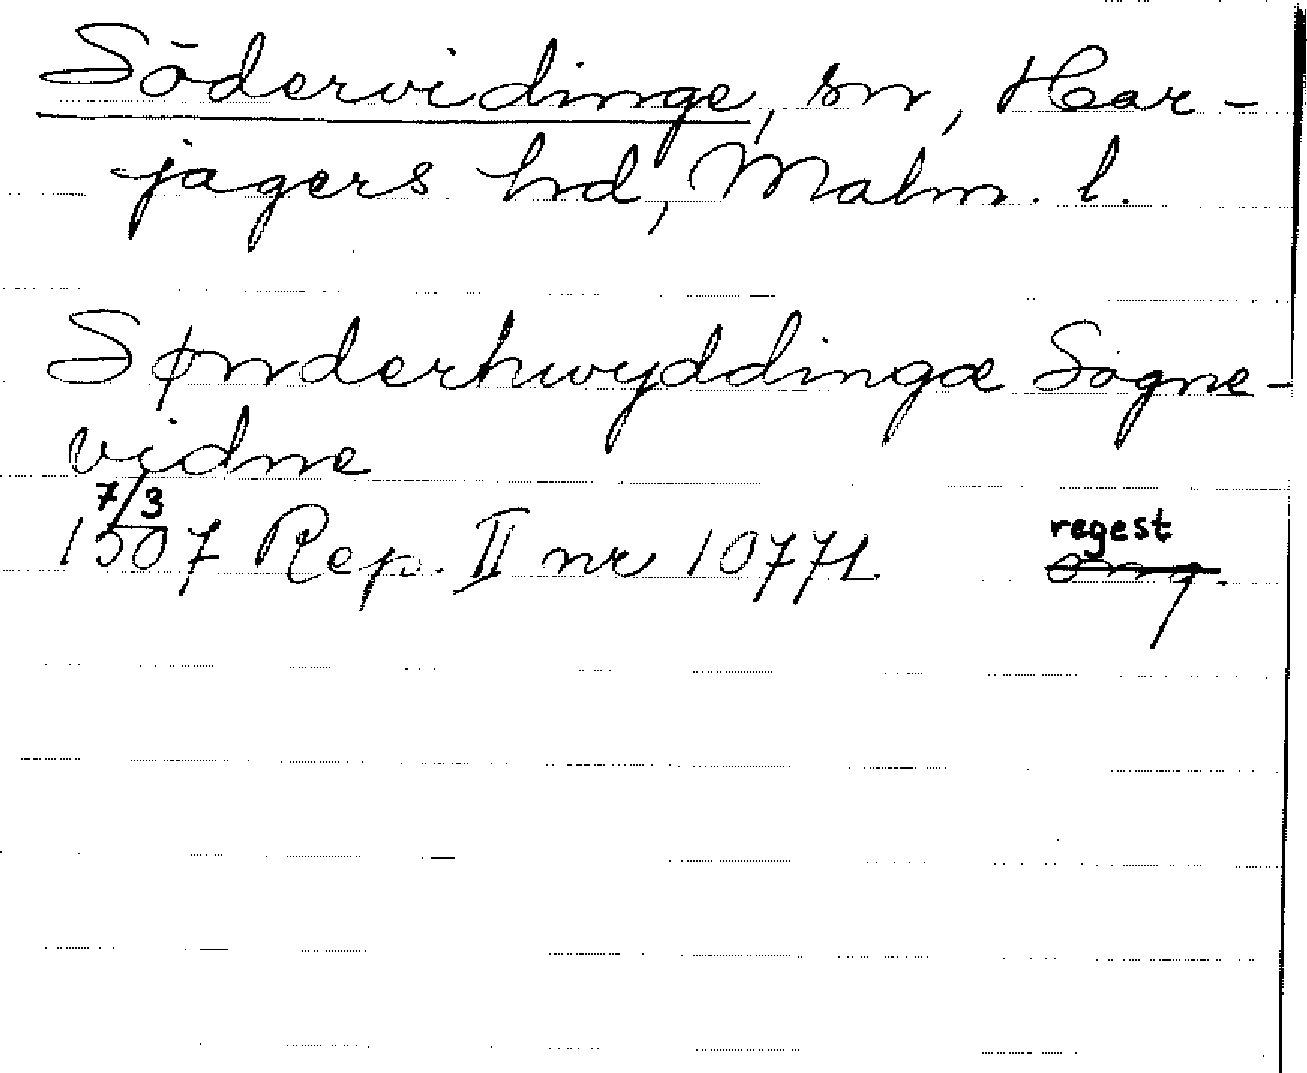 Södervidinge, sn, Har-
jagers hd, Malm. l.
Sønderhwyddingæ Sogne-
vidne
7/3
1507 Rep. II nr 10771
regest